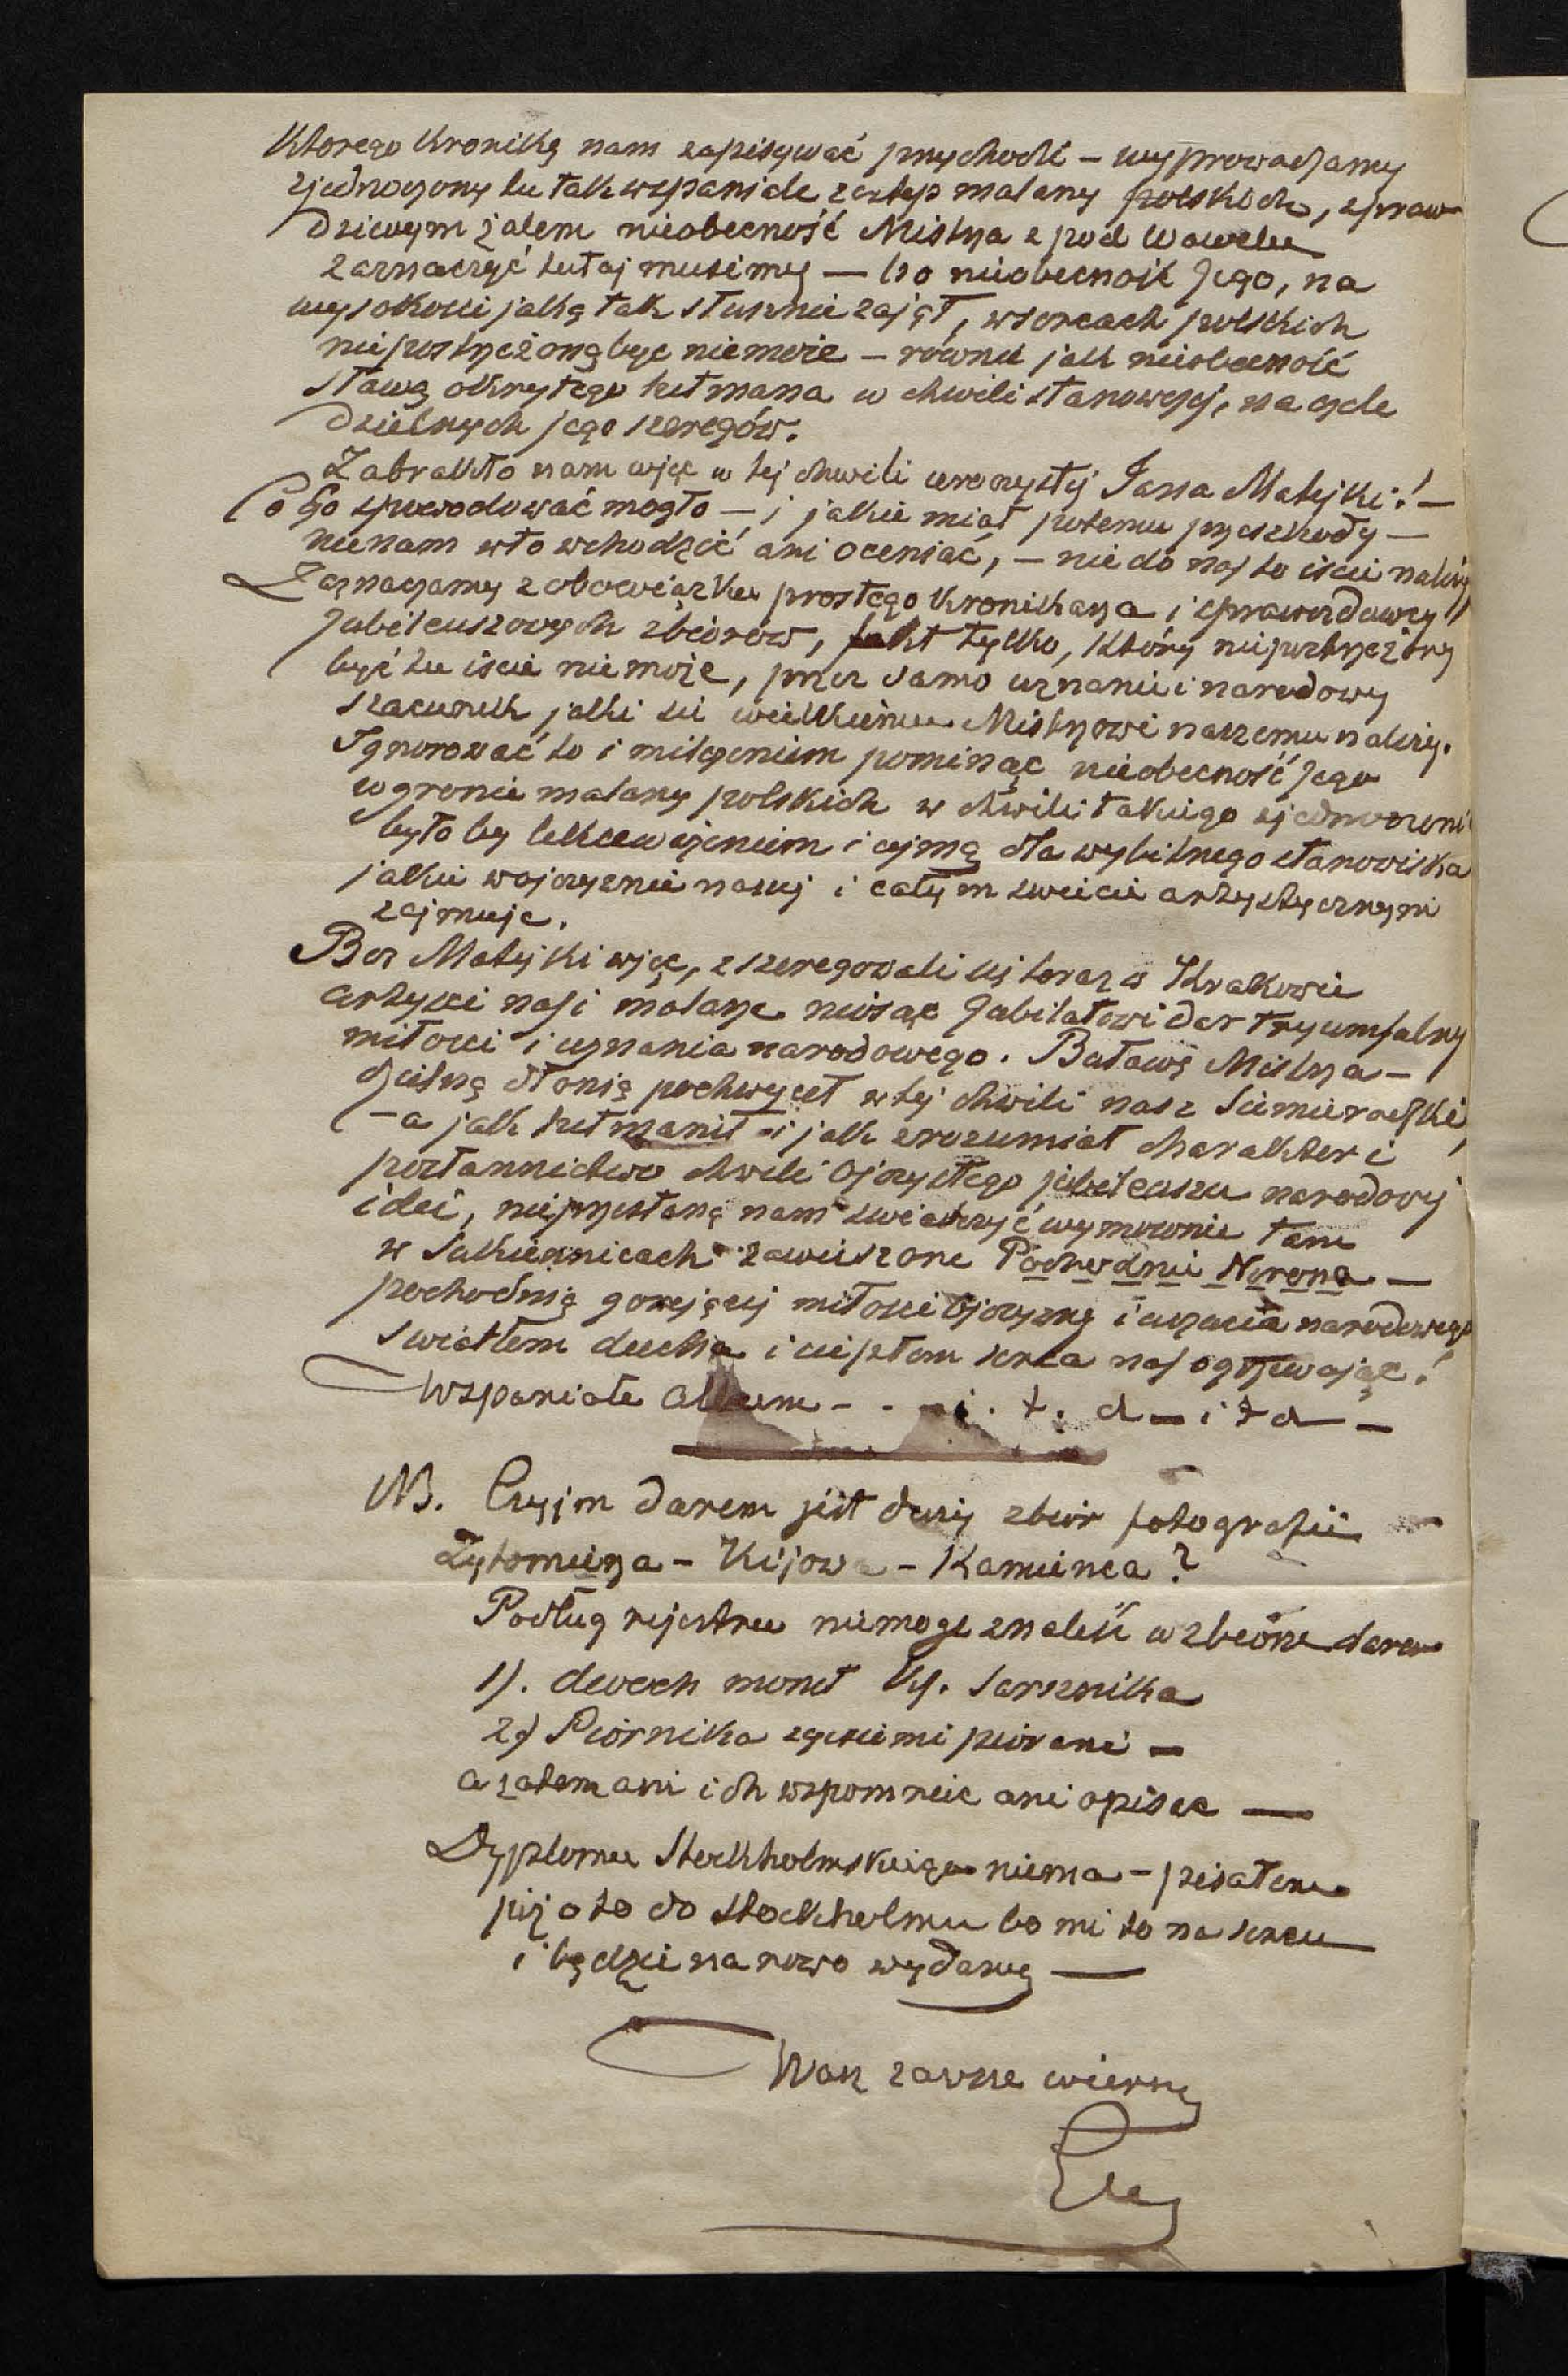 Którego Kronikę nam zapisywać przychodzi – wyprowadzamy
zjednoczony tu tak wspaniale zastęp malarzy polskich, z praw
dziwym żalem nieobecność Mistrza z pod Wawelu
zaznaczyć tutaj musimy — bo nieobecność Jego, na
wysokości jaką tak słusznie zajął, w sercach polskich
niepostrzeżoną być niemoże – równie jak nieobecność
sławą okrytego hetmana w chwili stanowczej, na czele
dzielnych jego szeregów.
Zabrakło nam więc w tej chwili uroczystej Jana Matejki! –
Co Go spowodować mogło – i jakie miał potemu przeszkody –
nienam w to wchodzić ani oceniać, – nie do nas to iście należy
Zaznaczamy z obowiązku prostego Kronikarza i sprawozdawcy
Jubileuszowych zbiorów, fakt tylko, który niepostrzeżony
być tu iście nie może, przez samo uznanie i narodowy
szacunek jaki się wielkiemu Mistrzowi naszemu należy.
Ignorować to i milczeniem pominąć nieobecność Jego
w gronie malarzy polskich w chwili takiego zjednoczenia
było by lekceważeniem i ujmą dla wybitnego stanowiska
jakie w ojczyznie naszej i całym świecie artystycznym
zajmuje.
Bez Matejki więc, zszeregowali się teraz w Krakowie
artyści nasi malarze niosąc Jubilatowi dar tryumfalny
miłości i uznania narodowego. Buławę Mistrza –
dzielną dłonią pochwycił w tej chwili nasz Siemieradzki,
– a jak hetmanił – i jak zrozumiał charakter i
posłannictwo chwili Ojczystego jubileuszu narodowej
idei, nieprzestaną nam świadczyć wymownie tam
w Sukiennicach zawieszone Pochodnie Nerona –
pochodnią gorejącej miłości Ojczyzny i uczucia narodowego
światłem ducha i ciepłem serca nas ogrzewając!
Wspaniałe Album - - - i. t. d – i t d –
NB. Czyjm darem jest duży zbiór fotografii
Żytomierza – Kijowa – Kamieńca?
Podług rejestru niemogę znaleść w zbiorze darów
1). dwoch monet Ks. Sarsznika
2) Piórnika z gęsiemi piórami –
a zatem ani ich wspomnieć ani opisać —
Dyplomu Stockholmskiego niema – pisałem
już o to do Stockholmu bo mi to na sercu
i będzie na nowo wydany —
Wasz zawsze wierny